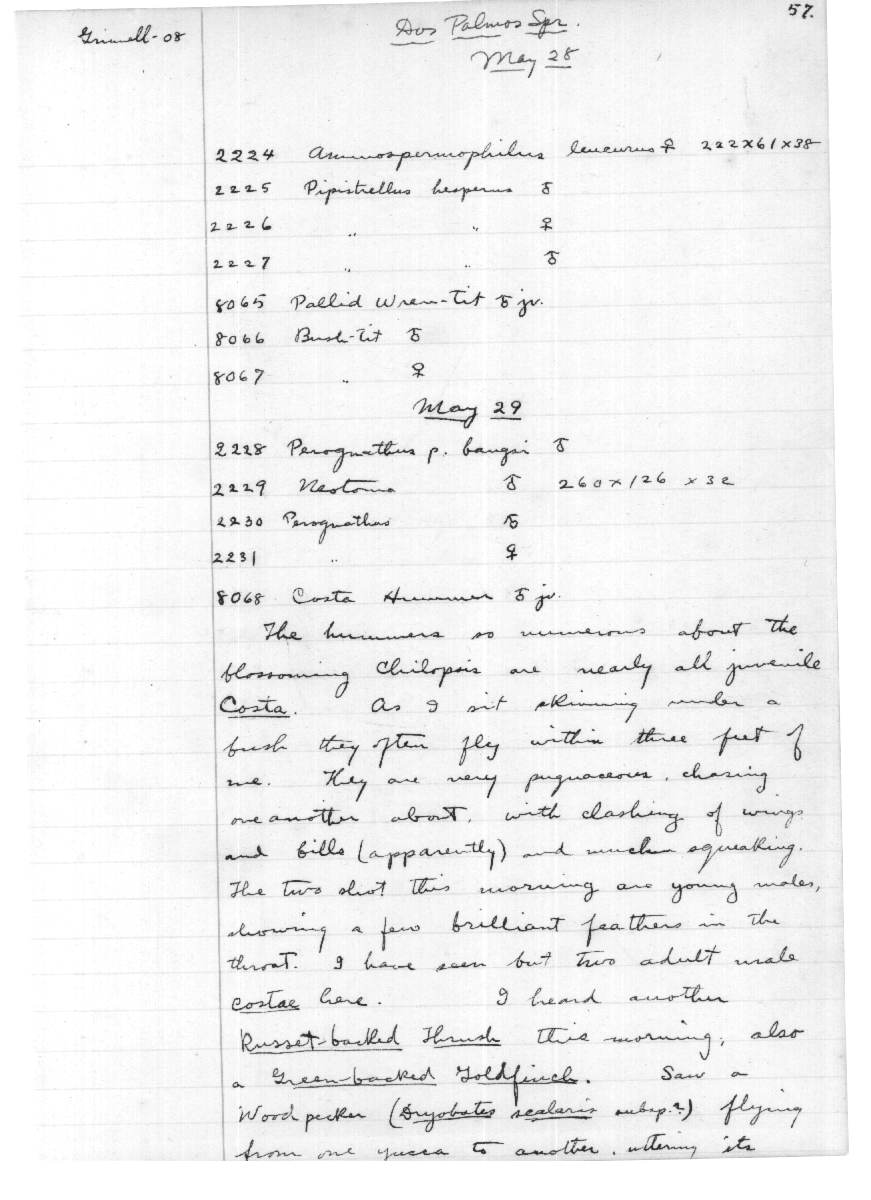 57.
Grinnell-08
Dos Palmos Spr.
May 28
2224 Ammospermophilus leucurus ♀ 222x61x38
2225 Pipistrellus hesperus ♂
2226 " " ♀
2227 " " ♂
8065 Pallid Wren-tit ♂ jv.
8066 Bush-tit ♂
8067 " ♀
May 29
2228 Perognathus p. bangsi ♂
2229 Neotoma ♂ 260x126 x32
2230 Perognathus ♂
2231 " ♀
8068 Costa Hummer ♂ jv.
The hummers so numerous about the
blossoming Chilopsis are nearly all juvenile
Costa. As I sit skinning under a
bush they often fly within three feet of
me. They are very pugnaceous, chasing
one another about, with clashing of wings
and bills (apparently) and much squeaking.
The two shot this morning are young males,
showing a few brilliant feathers in the
throat. I have seen but two adult male
costae here. I heard another
Russet-backed Thrush this morning; also
a Green-backed Goldfinch. Saw a
Woodpecker (Dryobates scalaris subsp.?) flying
from one yucca to another, uttering its